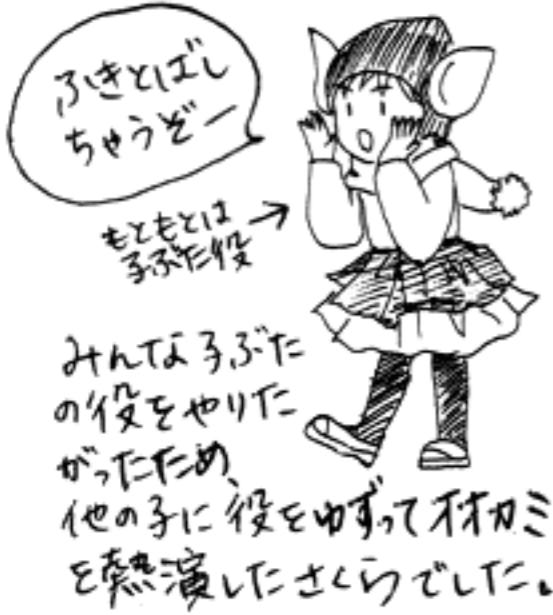 ふきとばし
ちゃうぞー
もともとは
子ぶた役
みんな子ぶた
の役をやりた
がったため、
他の子に役をゆずってオオカミ
を熱演したさくらでした。